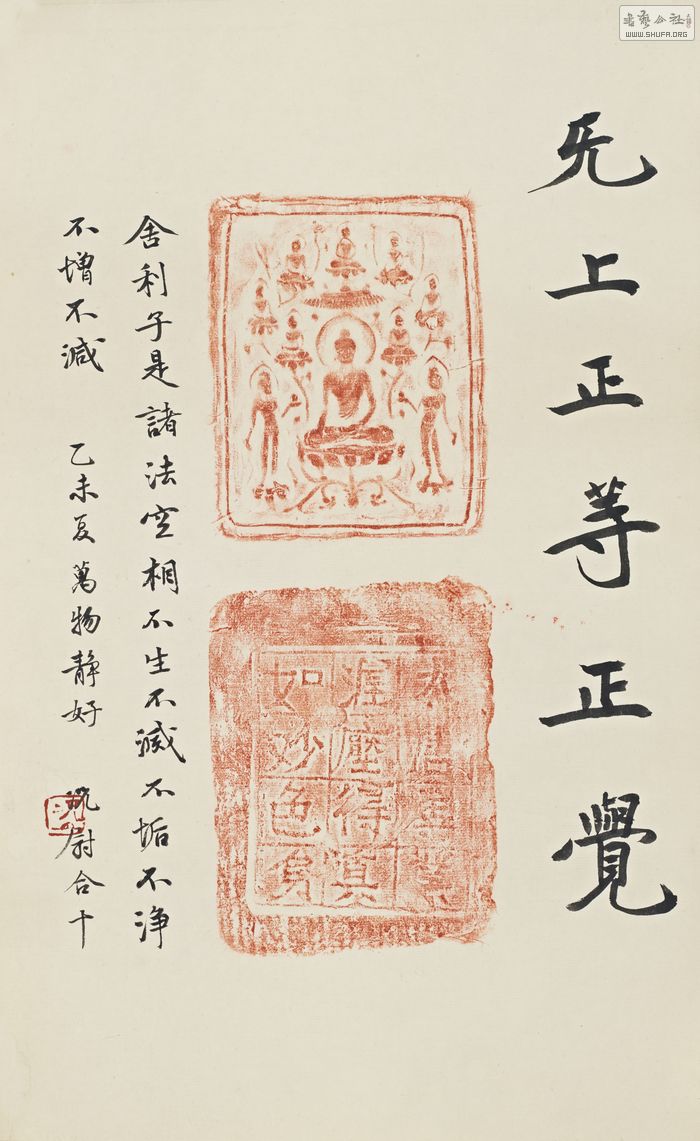 无上正等正覺
大唐善業
埿壓得真
如妙色身
舍利子是諸法空相不生不滅不垢不淨
不增不減 乙未夏萬物靜好 尉合十
書藝公社
WWW.SHUFA.ORG